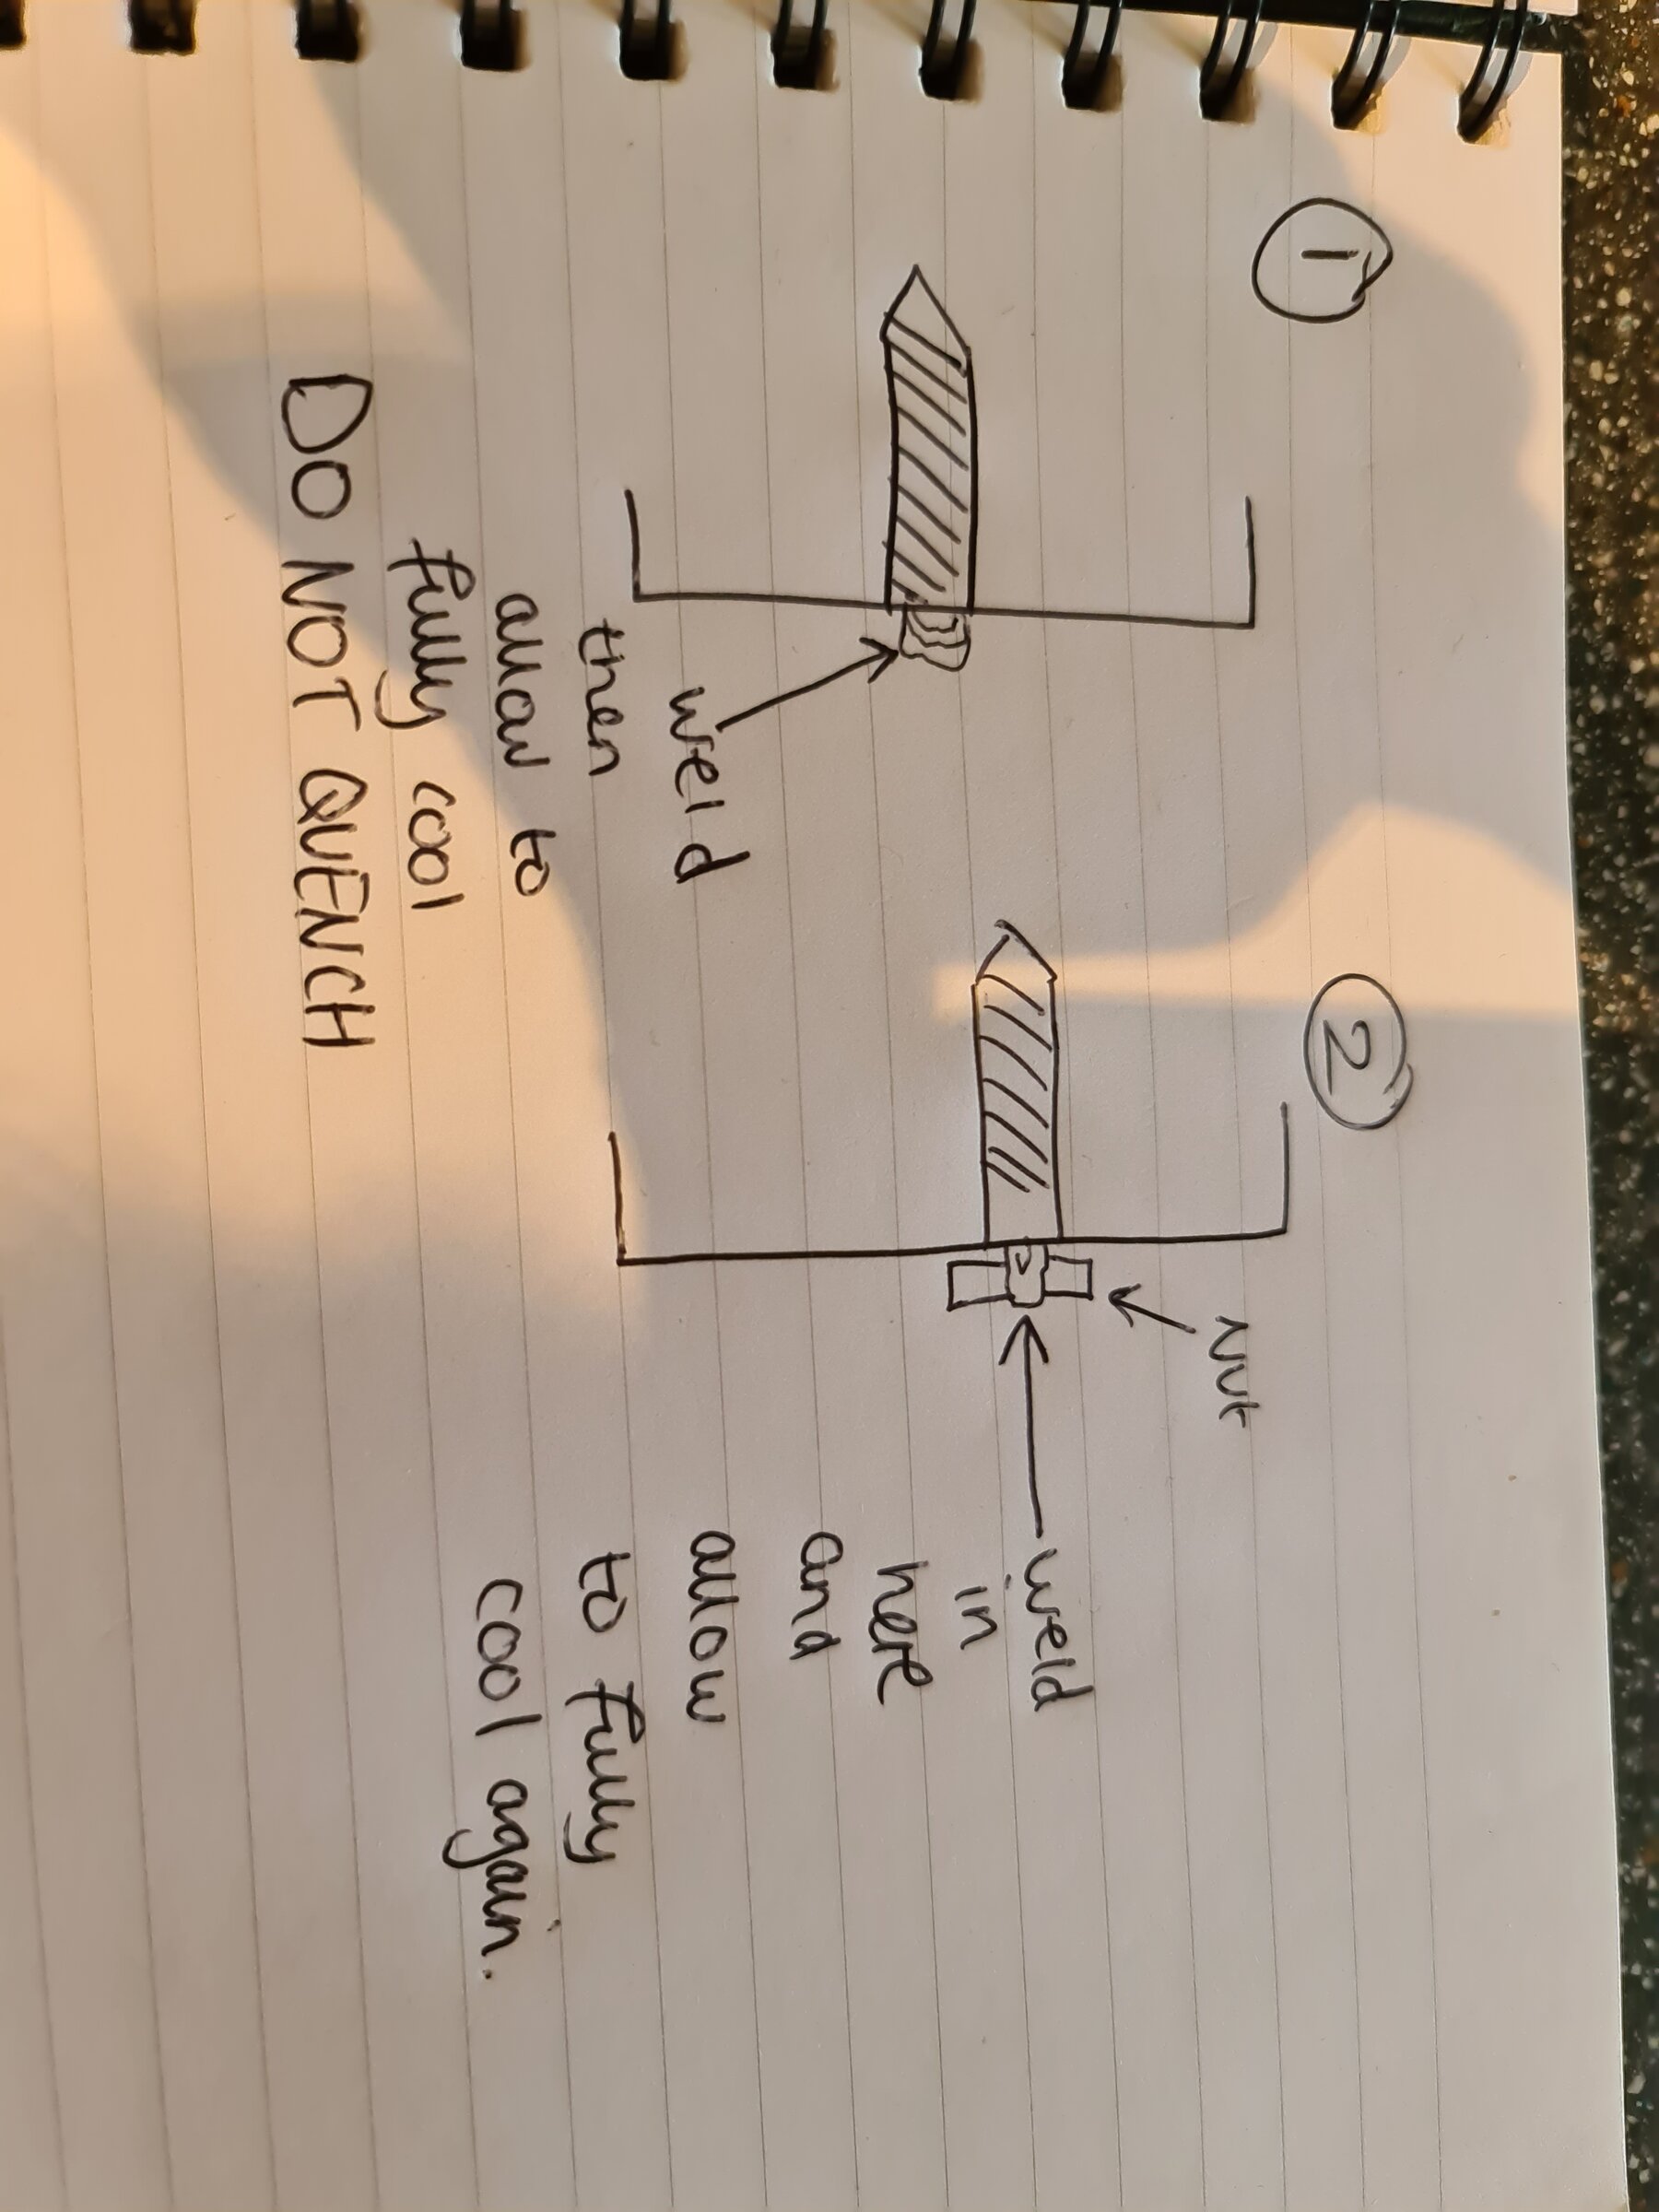 1
weld
then
allow to
fully cool
DO NOT QUENCH
2
Nut
weld
in
here
and
allow
to fully
cool again.